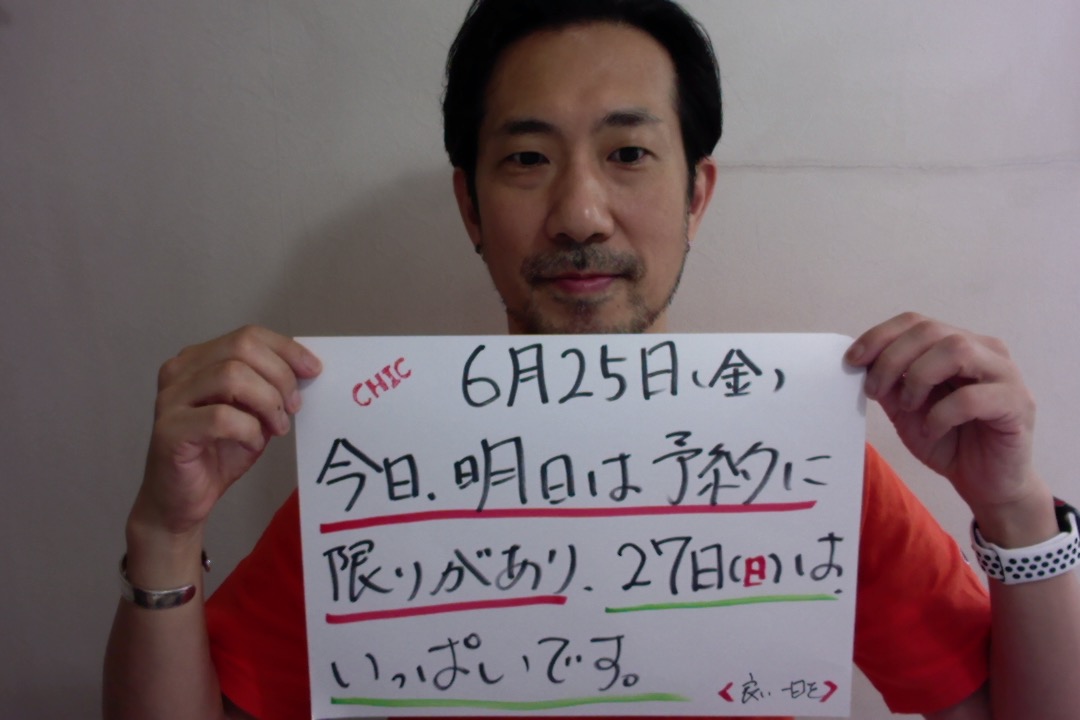 CHIC 6月25日(金)
今日、明日は予約に
限りがあり、27日(日)は、
いっぱいです。
<良い一日を>